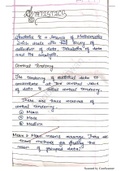 STATISTICS
Statistics is a Science of Mathematics
which deals with the Study of
collection of data, Tabulation of data
and its analysis.
Central Tendency
The tendency of statistical data to
concentrate at the central part
of data is called central tendency.
There are three measures of
central tendency.
Mean
Mode
Median
Mean :- Mean means average. There are
three methods for finding the
mean of grouped data: